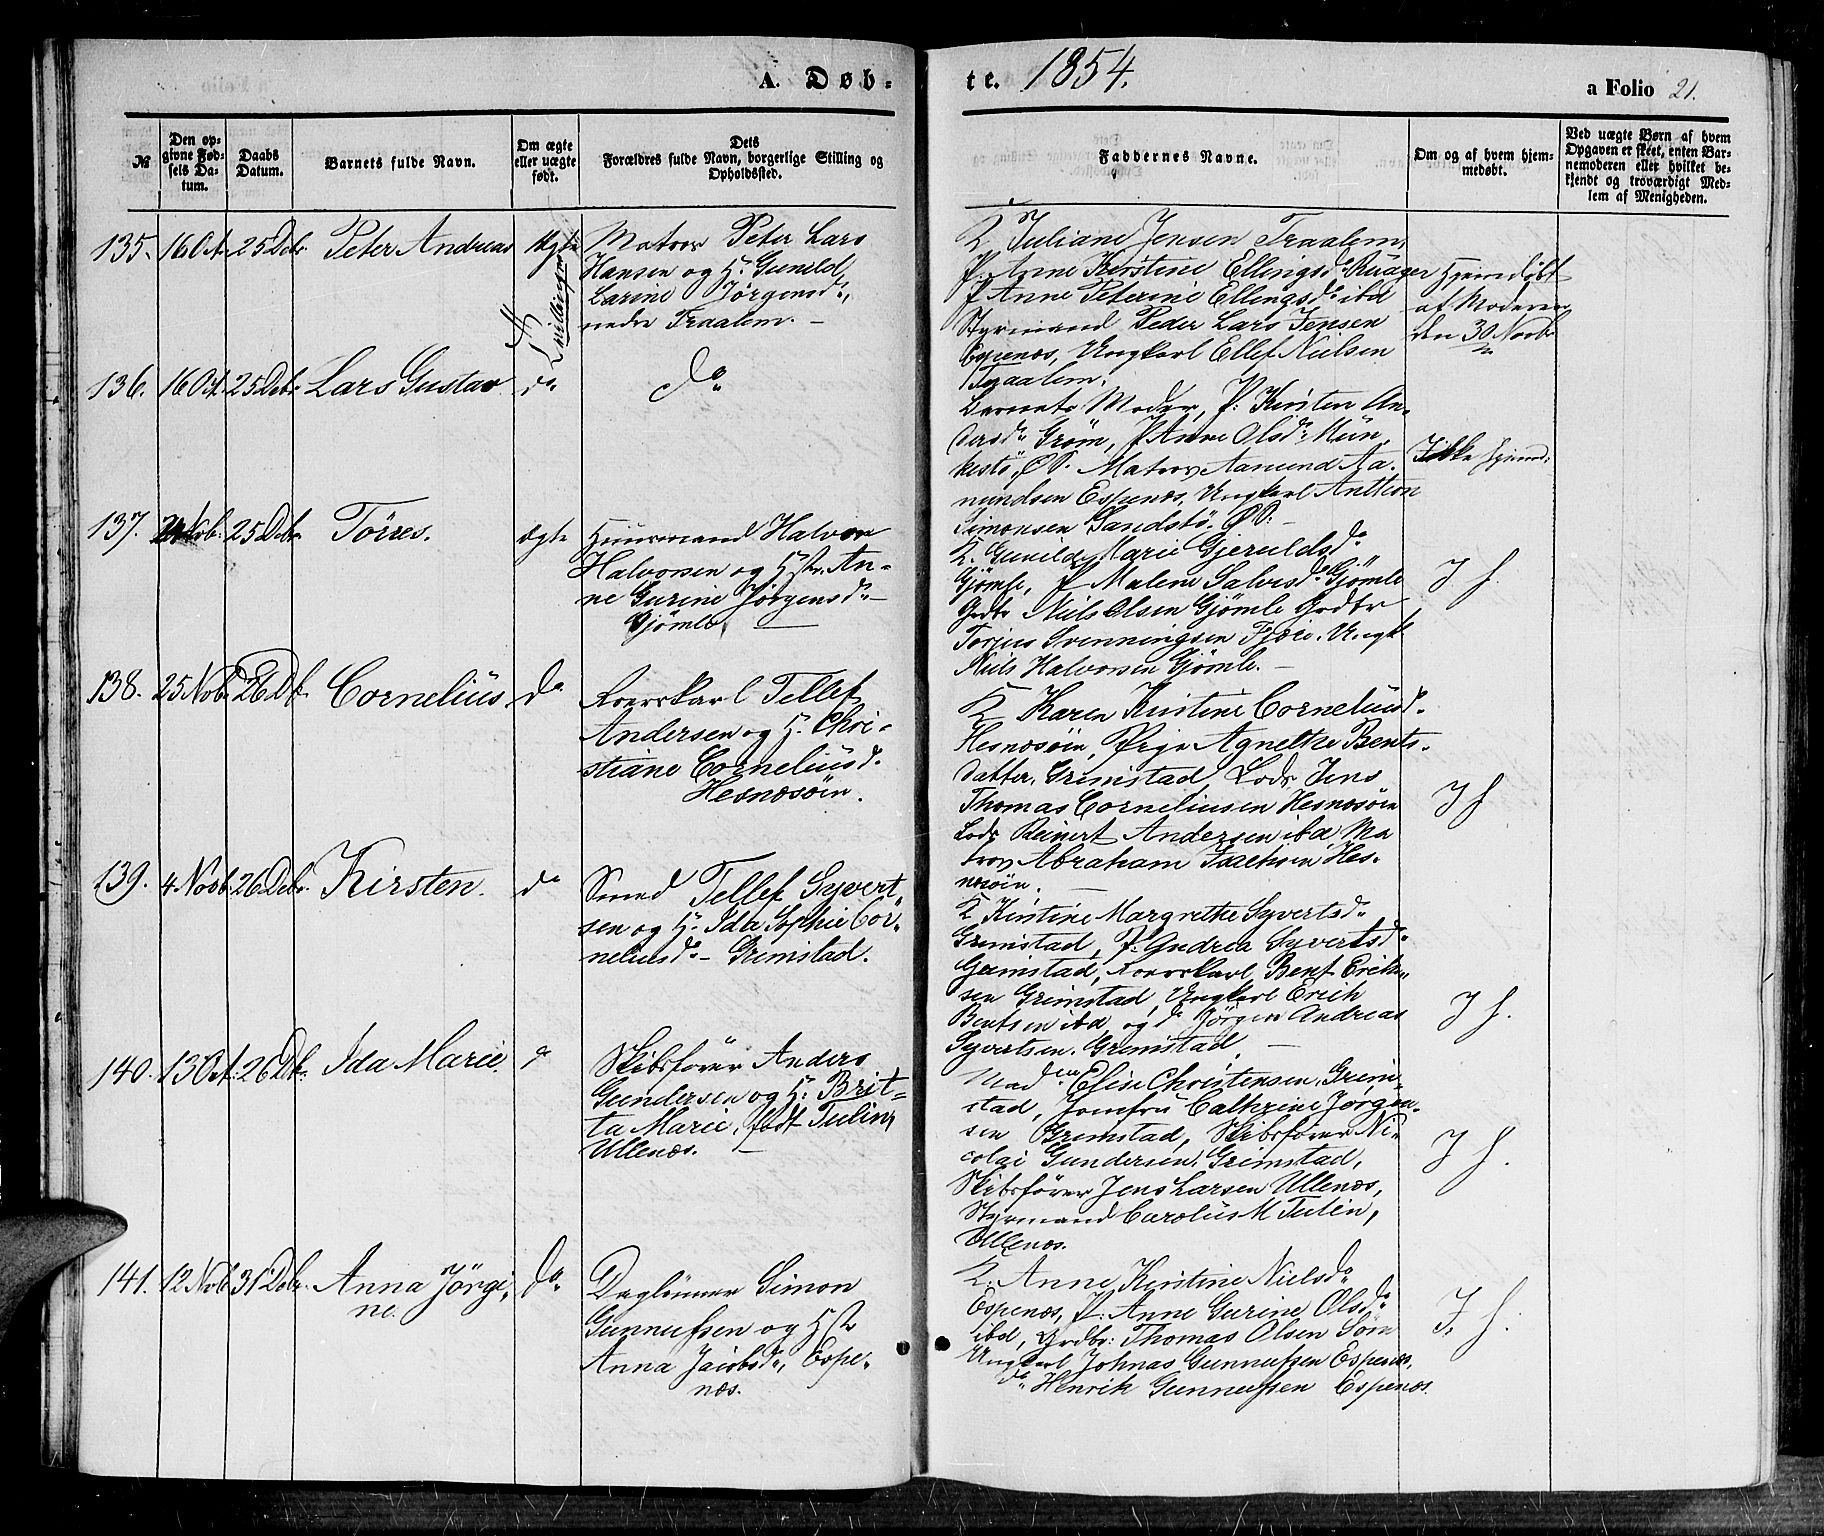 A. Døb-
te. 1854.
a Folio 21.
№
Den op-
givne Fød-
sels Da-
tum.
Daabs
Datum.
Barnets fulde Navn.
Om ægte
eller uægte
født.
Dets
Forældres fulde Navn, borgerlige Stilling og
Opholdssted.
Faddernes Navne.
Om og af hvem hjem-
medøbt.
Ved uægte Børn af hvem
Opgaven er skeet, enten Bar-
nemoderen eller hvilket be-
kjendt og troværdigt Med-
lem af Menigheden.
135. 16 Oct. 25 Debr. Peter Andreas ægte
Matros Peter Lars
Hansen og H. Gunild
Larine Jørgensd.
nedre Traalem. –
K Juliane Jensen Traalem,
P. Anne Kerstine Ellingsd.
P Anne Peterine Ellingsd. ibd
Styrmand Peder Lars Jensen
Espenæs, Ungkarl Ellef Nielsen
Traalem.
Hjemdøbt
af Moderen
den 30 Novbr
136. 16 Oct. 25 Debr. Lars Gustav do
do
Barnets Moder, P: Kirsten An-
dersd. Grøm, P Anne Olsd.
Matros Aamund Aa-
mundsen Espenæs, Ungkarl Anthon
Simonsen Sandstø. ØS: –
Ikke hjemd:
137. Nob. 25 Debr. Tørres. ægte
Huusmand Halvor
Halvorsen og Hstr. An-
ne Gurine Jørgensd. –
Gjømle.
K. Gunild Marie Gjeruldsd.
Gjømle, P Malene Salvesd. Gjømle
Grdbr Niels Olsen Gjømle Grdbr
Torjus Svenningsen Fjære. Ungk
Niels Halvorsen Gjømle. –
I h.
138. 25 Nob. 26 Db. Cornelius do
Roerskarl Tellef
Andersen og H. Chri-
stiane Corneliusd.
Hesnæsøin.
K Karen Kirstine Corneliusd.
Hesnæsøin, Pige Agnethe Bents-
datter, Grimstad, Lods Jens
Thomas Corneliusen Hesnæsøin
Lods Reinert Andersen ibd, Ma-
tros Abraham Isachsen Hes-
næsøin.
I h
139. 4 Novb 26 Debr. Kirsten. do
Smed Tellef Syvert-
sen og H. Ida Sophie Cor-
neliusd. – Grimstad.
K Kirstine Margrethe Syvertsd.
Grimstad, P. Andrea Syvertsd.
Grimstad, Roerskarl Bent Erich-
sen Grimstad, Ungkarl Erich
Bentsen ibd, og do Jørgen Andreas
Syvertsen. Grimstad. –
I h.
140. 13 Oct. 26 Db. Ida Marie. do
Skibsfører Anders
Gundersen og H. Brit-
ta Marie, født Tulin,
Ullenæs. –
Madm Elise Christensen, Grim-
stad, Jomfru Cathrine Jørgen-
sen Grimstad, Skibsfører Ni-
colai Gundersen, Grimstad,
Skibsfører Jens Larsen Ullenæs,
Styrmand Carolus M Tulin,
Ullenæs.
I h.
141. 12 Nob. 31 Debr. Anna Jørgi-
ne. do
Dagleiner Simon
Gunnufsen og Hstr
Anna Jacobsd., Espe-
næs.
K. Anne Kirstine Nielsd.
Espenæs, P. Anne Gurine Olsd.
ibd, Grdbr: Thomas Olsen Søm
Ungkarl Johnas Gunnufsen Espenæs,
do Henrik Gunnufsen Espenæs.
I. h.